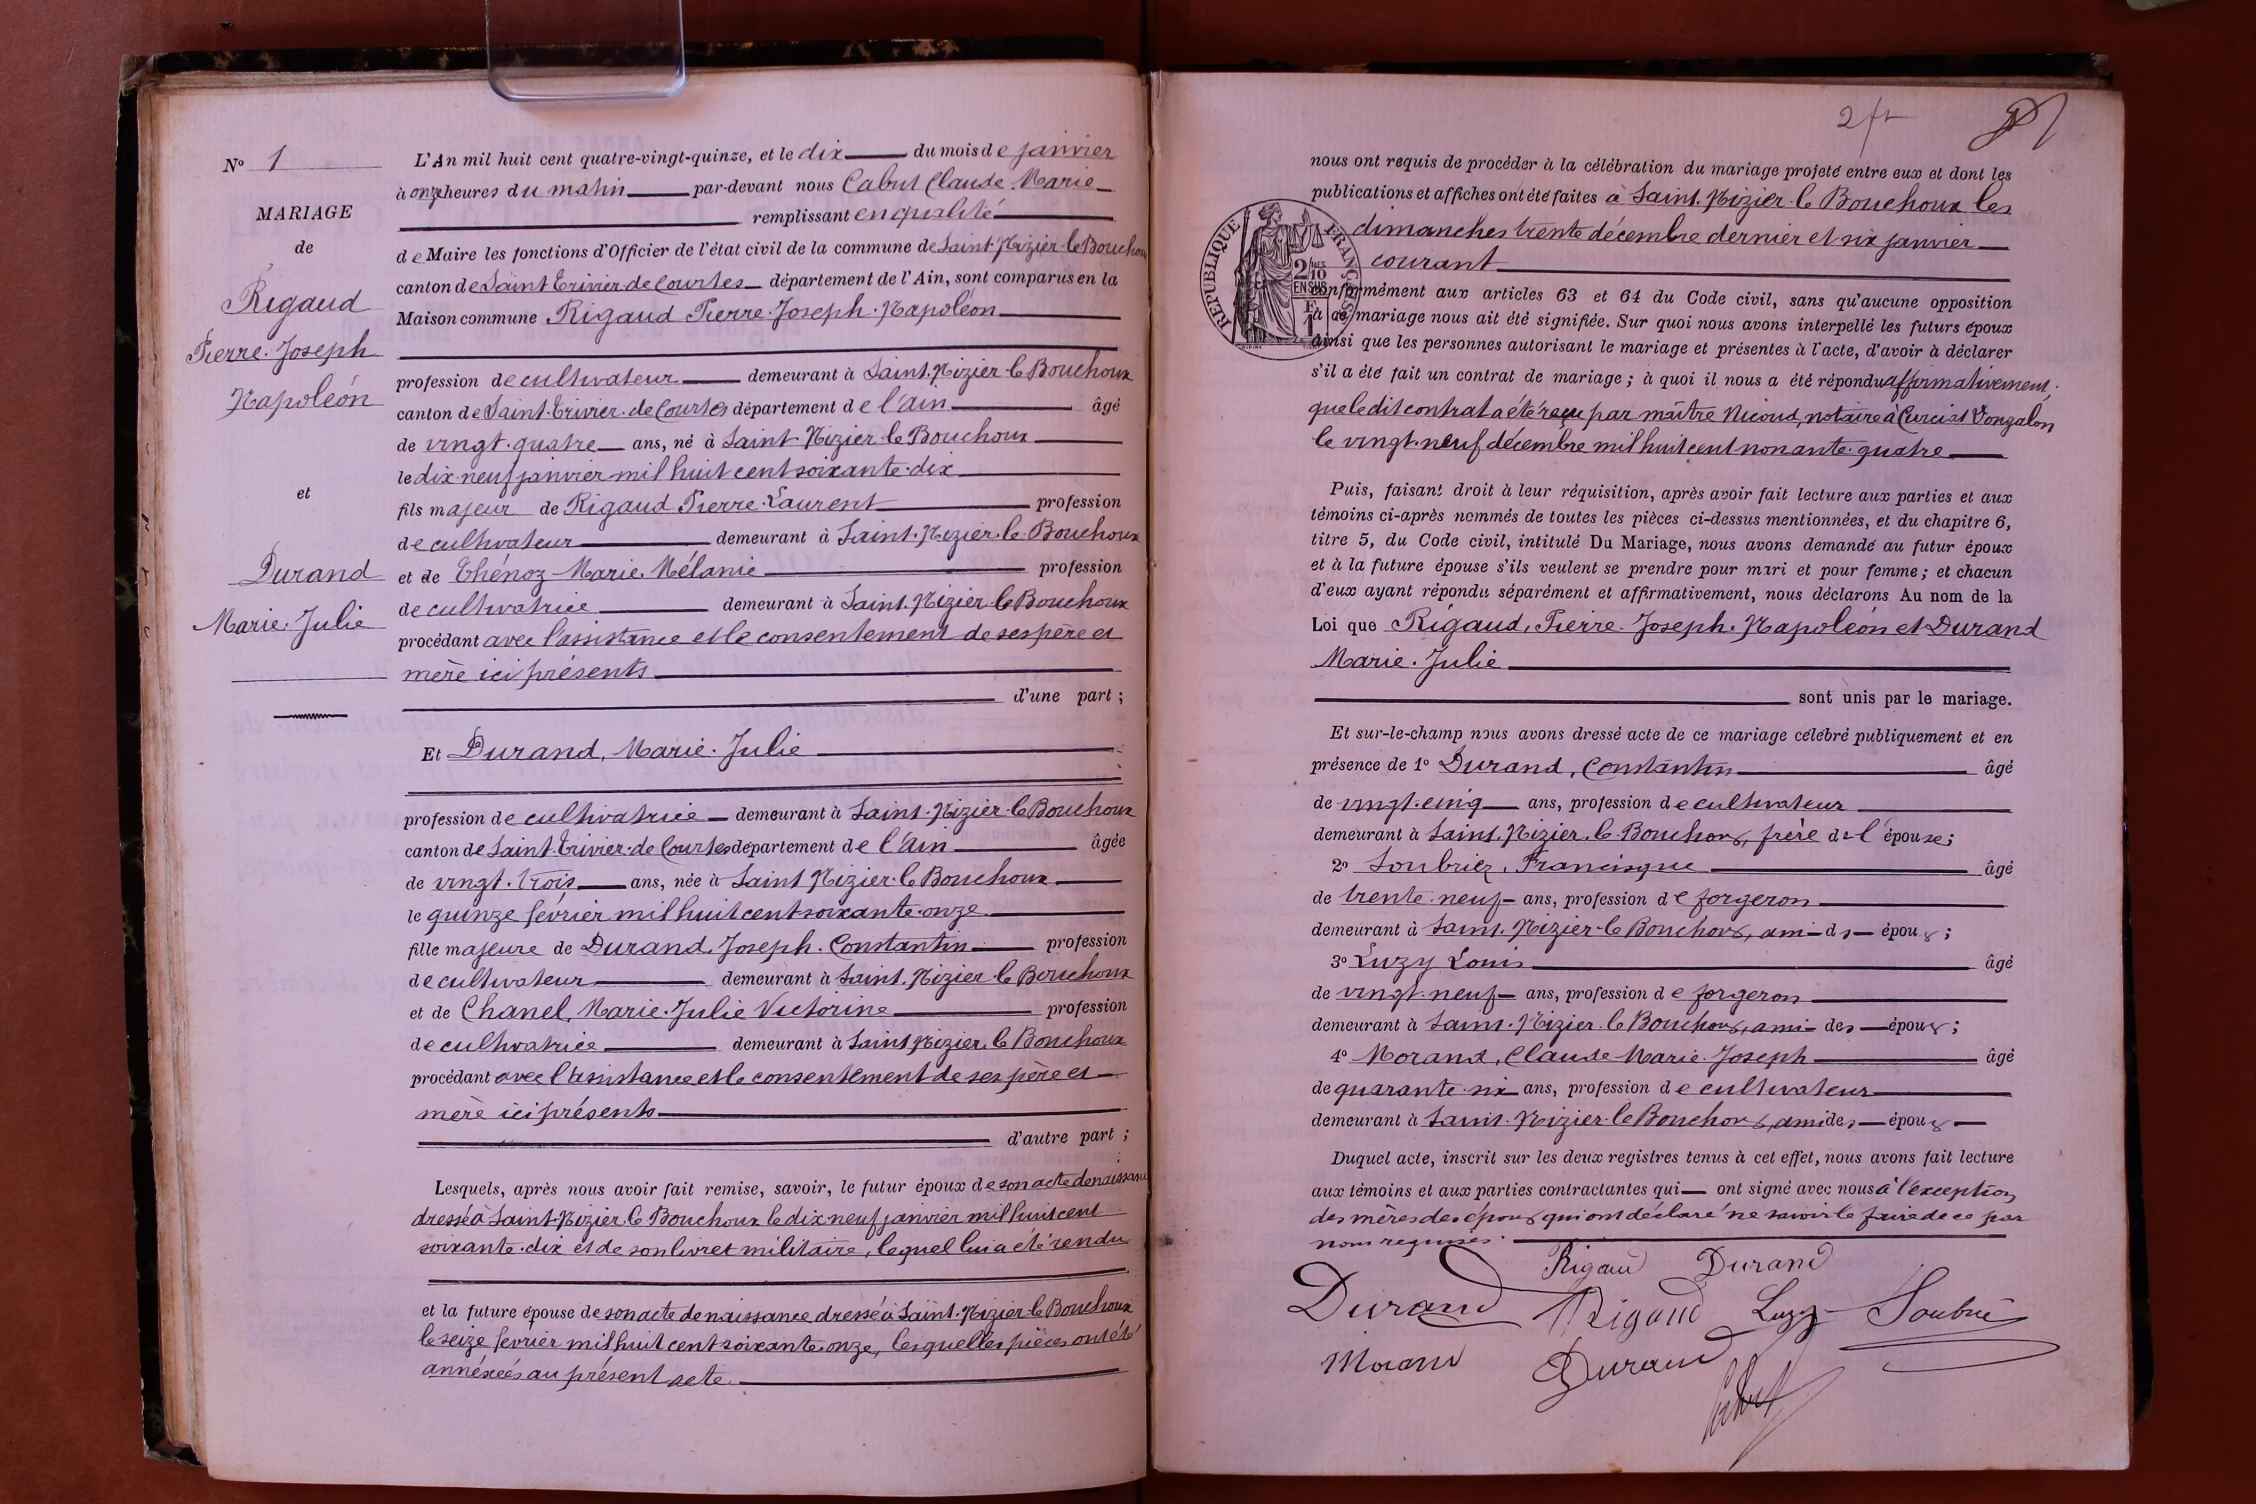 N° 1
MARIAGE
de
Rigaud
Pierre. Joseph
Napoléon
et
Durand
Marie. Julie
L'An mil huit cent quatre-vingt-quinze, et le dix du mois de janvier
à onze heures du matin par-devant nous Cabut Claude Marie
remplissant en qualité
de Maire les fonctions d'Officier de l'état civil de la commune de Saint-Nizier-le Bouchoux
canton de Saint Trivier de Courtes département de l'Ain, sont comparus en la
Maison commune Rigaud Pierre. Joseph. Napoléon
profession de cultivateur demeurant à Saint. Nizier-le Bouchoux
canton de Saint. Trivier. de Courtes département de l'Ain âgé
de vingt. quatre ans, né à Saint Nizier-le Bouchoux
le dix-neuf janvier mil huit cent soixante-dix
fils majeur de Rigaud Pierre. Laurent profession
de cultivateur demeurant à Saint. Nizier. le. Bouchoux
et de Thénoz Marie. Mélanie profession
de cultivatrice demeurant à Saint. Nizier-le Bouchoux
procédant avec l'assistance et le consentement de ses père et
mère ici présents
d'une part ;
Et Durand, Marie. Julie
profession de cultivatrice demeurant à Saint. Nizier-le Bouchoux
canton de Saint-Trivier-de Courtes département de l'Ain âgée
de vingt. trois ans, née à Saint Nizier-le Bouchoux
le quinze février mil huit cent soixante-onze
fille majeure de Durand, Joseph. Constantin profession
de cultivateur demeurant à Saint. Nizier-le Bouchoux
et de Chanel, Marie. Julie Victorine profession
de cultivatrice demeurant à Saint Nizier. le Bouchoux
procédant avec l'assistance et le consentement de ses père et
mère ici présents
d'autre part ;
Lesquels, après nous avoir fait remise, savoir, le futur époux de son acte de naissance
dressé à Saint-Nizier. le Bouchoux le dix neuf janvier mil huit cent
soixante-dix et de son livret militaire, lequel lui a été rendu
et la future épouse de son acte de naissance dressé à Saint. Nizier-le Bouchoux
le seize février mil huit cent soixante-onze, lesquelles pièces ont été
annéxées au présent acte.
2
nous ont requis de procéder à la célébration du mariage projeté entre eux et dont les
publications et affiches ont été faites à Saint. Nizier-le Bouchoux les
dimanches trente décembre dernier et six janvier
courant
RÉPUBLIQUE FRANÇAISE
2/10
EN SUS
conformément aux articles 63 et 64 du Code civil, sans qu'aucune opposition
à ce mariage nous ait été signifiée. Sur quoi nous avons interpellé les futurs époux
ainsi que les personnes autorisant le mariage et présentes à l'acte, d'avoir à déclarer
s'il a été fait un contrat de mariage ; à quoi il nous a été répondu affirmativement,
que le dit contrat a été reçu par maître Nicoud, notaire à Curciat Dongalon
le vingt-neuf décembre mil huit cent nonante-quatre
Puis, faisant droit à leur réquisition, après avoir fait lecture aux parties et aux
témoins ci-après nommés de toutes les pièces ci-dessus mentionnées, et du chapitre 6,
titre 5, du Code civil, intitulé Du Mariage, nous avons demandé au futur époux
et à la future épouse s'ils veulent se prendre pour mari et pour femme ; et chacun
d'eux ayant répondu séparément et affirmativement, nous déclarons Au nom de la
Loi que Rigaud, Pierre. Joseph. Napoléon et Durand
Marie. Julie
sont unis par le mariage.
Et sur-le-champ nous avons dressé acte de ce mariage célébré publiquement et en
présence de 1° Durand, Constantin âgé
de vingt-cinq ans, profession de cultivateur
demeurant à Saint. Nizier. le. Bouchoux, frère de l'épouse ;
2° Soubrier, Francisque âgé
de trente-neuf ans, profession de forgeron
demeurant à Saint. Nizier-le Bouchoux, ami des époux ;
3° Luzy Louis âgé
de vingt-neuf ans, profession de forgeron
demeurant à Saint. Nizier. le Bouchoux, ami des époux ;
4° Morand, Claude Marie. Joseph âgé
de quarante-six ans, profession de cultivateur
demeurant à Saint. Nizier-le Bouchoux, ami des époux
Duquel acte, inscrit sur les deux registres tenus à cet effet, nous avons fait lecture
aux témoins et aux parties contractantes qui ont signé avec nous à l'exception
des mères des époux qui ont déclaré ne savoir le faire de ce par
nous requises.
Rigaud Durand
Durand Rigaud Luzy Soubrié
Morand Durand
Cabut